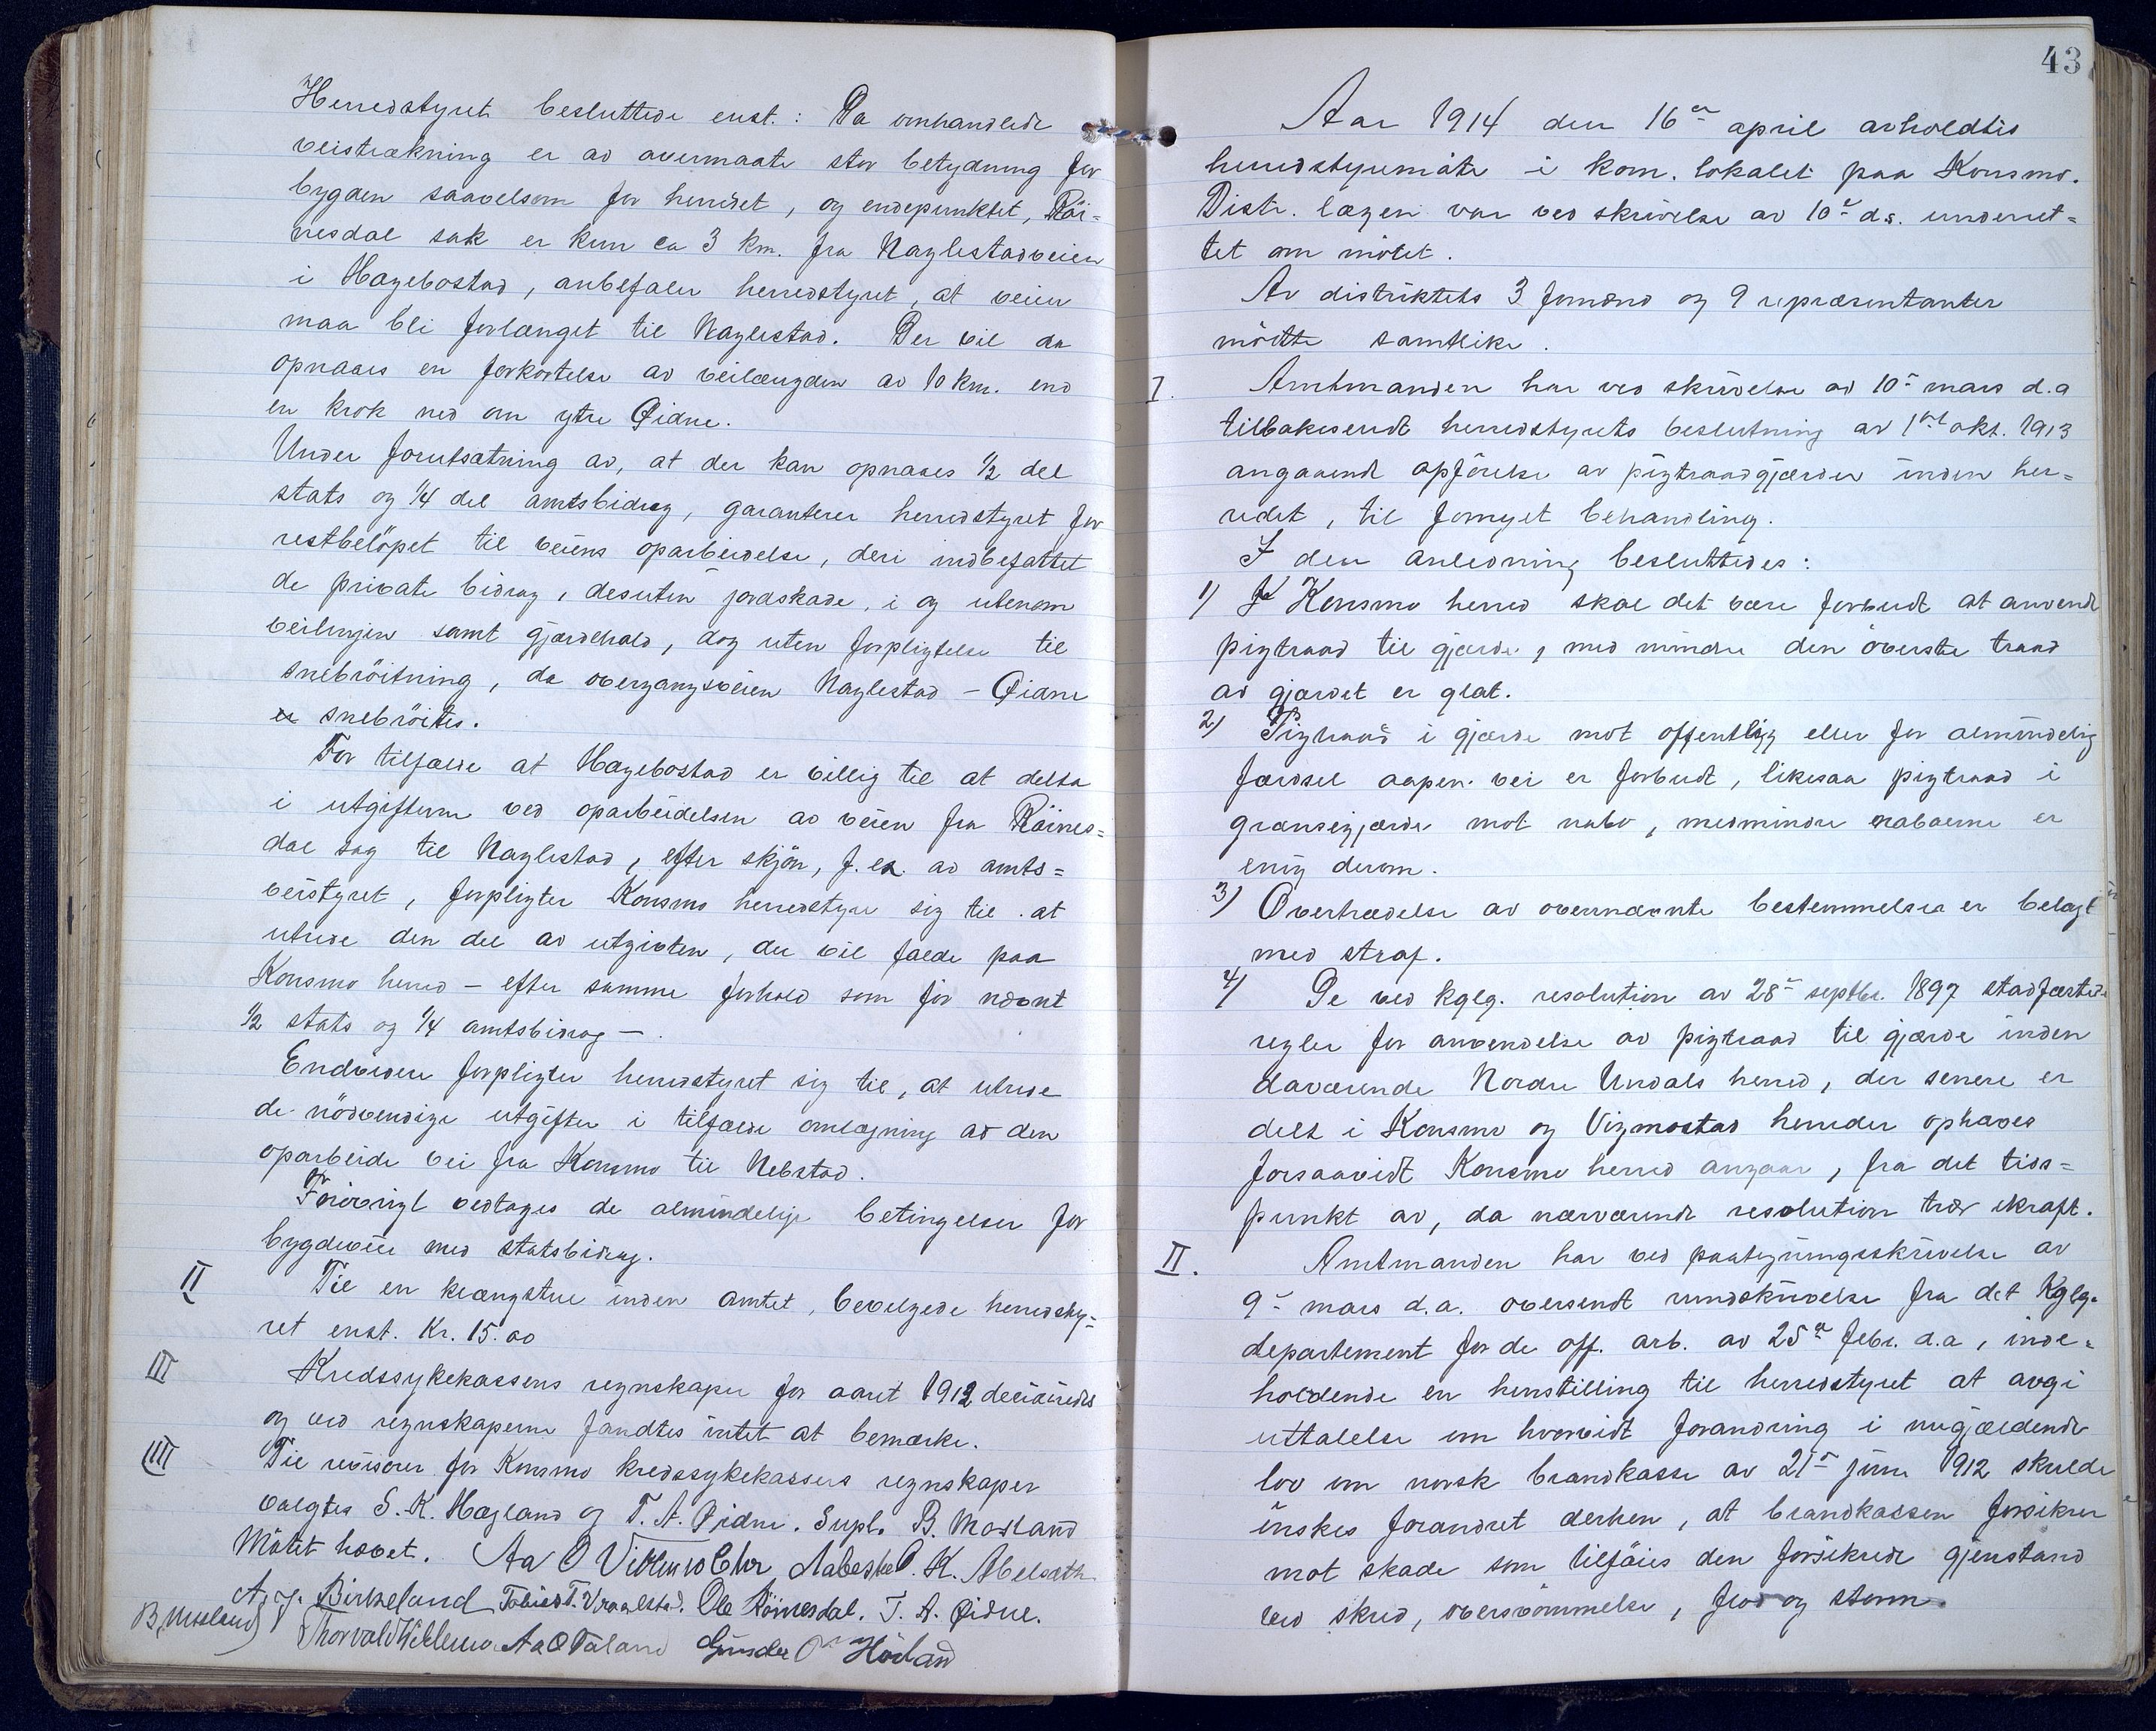 Herredstyret besluttede enst.: Da omhandlede
veistrækning er av overmaate stor betydning for
bygden saavelsom for herredet, og endepunktet, Röi-
nesdal sak er kun ca 3 km. fra Naglestadveien
i Hægebostad, anbefaler herredstyret, at veien
maa bli forlænget til Naglestad. Der vil da
opnaaes en forkortelse av veilængden av 10 km. end
en krok ned om ytre Øidne.
Under forutsætning av, at der kan opnaaes 1/2 del
stats og 1/4 del amtsbidrag, garanterer herredstyret for
restbelöpet til veiens oparbeidelse, deri indbefattet
de private bidrag, desuten jordskade, i og utenom
veilinjen samt gjærdehold, dog uten forpligtelse til
snebröitning, da overgangsveien Naglestad – Øidne
er snebröites.
For tilfælde at Hægebostad er villig til at delta
i utgifterne ved oparbeidelsen av veien fra Röines=
dal sag til Naglestad, efter skjön, f. ex. av amts=
veistyret, forpligter Konsmo herredstyre sig til at
utrede den del av utgivten, der vil falde paa
Konsmo herred – efter samme forhold som för nævnt
1/2 stats og 1/4 amtsbidrag –.
Endvidere forpligter herredstyret sig til, at utrede
de nödvendige utgifter i tilfælde omlægning av den
oparbeide vei fra Konsmo til Nebstad.
Forövrigt vedtages de almindelige betingelser for
bygdeveie med statsbidrag.
II Til en krængstue inden amtet, bevilgede herredsty=
ret enst. Kr. 15.00
III Kredssykekassens regnskaper for aaret 1912 decideredes
og ved regnskaperne fandtes intet at bemærke.
IIII Til revisorer for Konsmo kredssykekasses regnskaper
valgtes S. K. Hægland og T. A. Øidne. Supl. B. Mosland
Mötet hævet. Aa O Viblemo Chr Aabestad O. K. Abelseth
A. J. Birkeland Tobias T. Vraalstad. Ole Röinesdal. T. A. Øidne.
B. Mosland Thorvald Viblemo Aa O Faland Gunder O Hörland
43
Aar 1914 den 16de april avholdtes
herredstyremöte i kom. lokalet paa Konsmo.
Distr. lægen var ved skrivelse av 10de ds. underret=
tet om mötet.
Av distriktets 3 formænd og 9 repræsentanter
mötte samtlike.
I. Amtmanden har ved skrivelse av 10de mars d.a
tilbakesendt herredstyrets beslutning av 1ste okt. 1913
angaaende opförelse av pigtraadgjærder inden her=
redet, til fornyet behandling.
I den anledning besluttedes:
1) I Konsmo herred skal det være forbudt at anvende
pigtraad til gjærde, med mindre den överste traad
av gjærdet er glat.
2) Pigtraad i gjærde mot offentlig eller for almindelig
færdsel aapen vei er forbudt, likesaa pigtraad i
grænsegjærde mot nabo, medmindre naboerne er
enig derom.
3) Overtrædelse av ovennævnte bestemmelser er belagt
med straf.
4) De ved kglg. resolution av 28de septbr. 1897 stadfæstede
regler for anvendelse av pigtraad til gjærde inden
daværende Nordre Undals herred, der senere er
delt i Konsmo og Vigmostad herreder ophæves
forsaavidt Konsmo herred angaar, fra det tids=
punkt av, da nærværende resolution trær ikraft.
II. Amtmanden har ved paategningsskrivelse av
9de mars d.a. oversendt rundskrivelse fra det Kglg.
departement for de off. arb. av 25de febr. d.a, inde=
holdende en henstilling til herredstyret at avgi
uttalelse om hvorvidt forandring i nugjældende
lov om norsk brandkasse av 21de juni 1912 skulde
önskes forandret derhen, at brandkassen forsikrer
mot skade som tilföies den forsikrede gjenstand
ved skred, oversvömmelse, flod og storm.